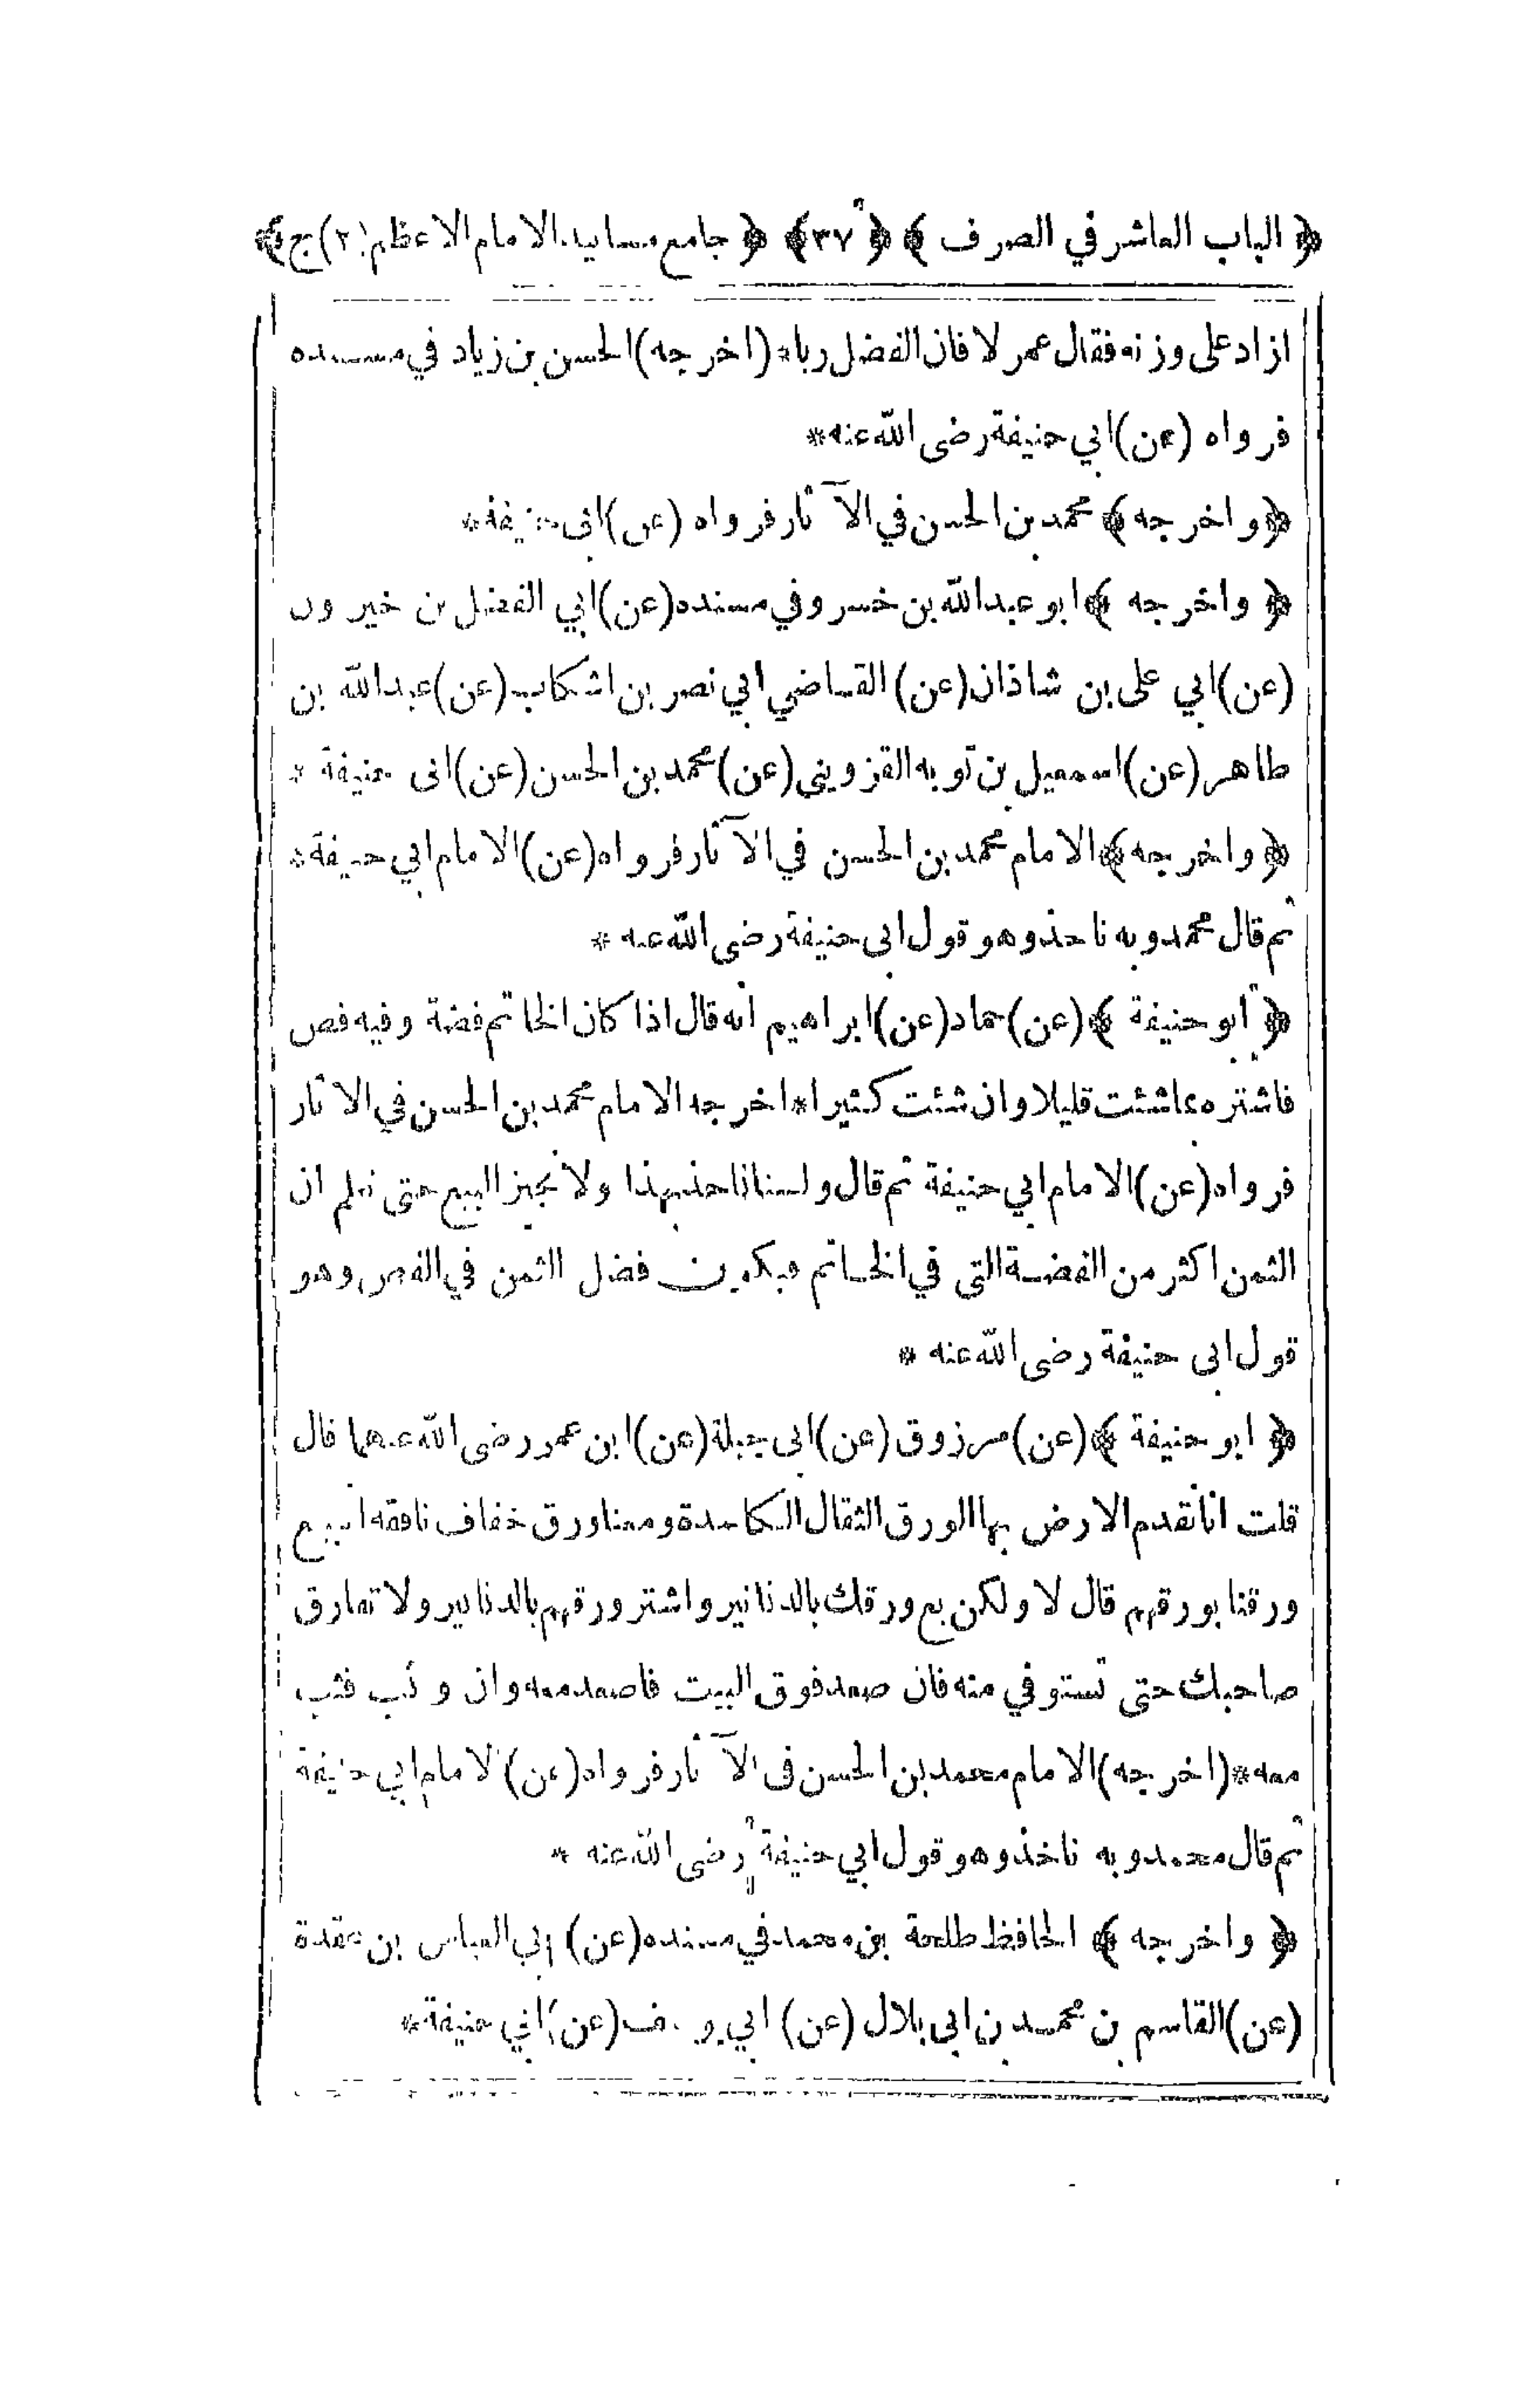 ﴿ الباب العاشر في الصرف ﴾ ﴿ ٣٧ ﴾ ﴿ جامع مسانيد الامام الاعظم (٢) ج ﴾
ازاد على وزنه فقال عمر لا فان الفضل رباء (اخرجه) الحسن بن زياد في مسنده
فرواه (عن) ابي حنيفة رضى الله عنه *
﴿ واخرجه ﴾ محمد بن الحسن في الآثار فرواه (عن) ابى حنيفة *
﴿ واخرجه ﴾ ابو عبدالله بن خسرو في مسنده (عن) ابي الفضل بن خيرون
(عن) ابي على بن شاذان (عن) القاضي ابي نصر بن اشكاب (عن) عبدالله بن
طاهر (عن) اسمعيل بن توبه القزوينى (عن) محمد بن الحسن (عن) ابى حنيفة *
﴿ واخرجه ﴾ الامام محمد بن الحسن في الآثار فرواه (عن) الامام ابي حنيفة *
ثم قال محمد وبه ناخذ وهو قول ابى حنيفة رضى الله عنه *
﴿ ابو حنيفة ﴾ (عن) حماد (عن) ابراهيم انه قال اذا كان الخاتم فضة وفيه فص
فاشتره بما شئت قليلا وان شئت كثيرا * اخرجه الامام محمد بن الحسن في الاثار
فرواه (عن) الامام ابي حنيفة ثم قال ولسنا ناخذ بهذا ولا نجيز البيع حتى نعلم ان
الثمن اكثر من الفضة التى في الخاتم فيكون فضل الثمن في الفص وهو
قول ابى حنيفة رضى الله عنه *
﴿ ابو حنيفة ﴾ (عن) مرزوق (عن) ابى جبلة (عن) ابن عمر رضى الله عنهما قال
قلت انا نقدم الارض بها الورق الثقال الكاسدة ومعنا ورق خفاف نافقة انبيع
ورقنا بورقهم قال لا ولكن بع ورقك بالدنانير واشتر ورقهم بالدنانير ولا تفارق
صاحبك حتى تستوفي منه فان صعد فوق البيت فاصعد معه وان وثب فثب
معه * (اخرجه) الامام محمد بن الحسن فى الآثار فرواه (عن) الامام ابي حنيفة
ثم قال محمد وبه ناخذ وهو قول ابي حنيفة رضى الله عنه *
﴿ واخرجه ﴾ الحافظ طلحة بن محمد في مسنده (عن) ابي العباس بن عقدة
(عن) القاسم بن محمد بن ابى بلال (عن) ابي يوسف (عن) ابي حنيفة *